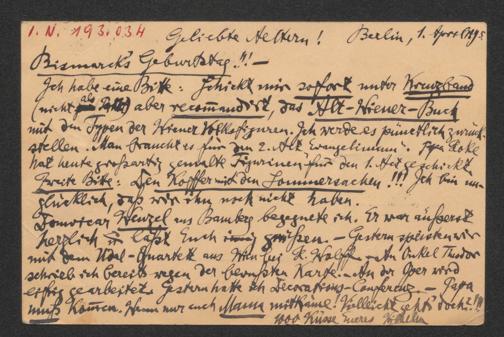 I. N. 193.034
Geliebte Aeltern! Berlin, 1. April
Bismarck's Geburtstag!!! –
Ich habe eine Bitte: Schickt mir sofort unter Kreuzband
(nicht als) aber recomandirt, das "Alt-Wiener-Buch"
mit den Typen der Wiener Volksfiguren. Ich werde es pünktlich zurück
stellen. Man braucht es für den 2. Akt Evangelimann.
hat heute großartig gemalte Figurinen für den 1. Akt geschickt
Zweite Bitte: Den Koffer mit den Sommersachen!!! Ich bin un-
glücklich, daß wir ihn noch nicht haben.
Domvicar Wenzel aus Bamberg begegnete ich. Er war äußerst
herzlich u. läßt Euch innig grüßen. – Gestern speisten wir
mit dem Udel-Quartett aus Wien bei K. Wolff. – An Onkel Theodor
schrieb ich bereits wegen der bewußten Karte. – An der Oper wird
eifrig gearbeitet. Gestern hatte ich Decorations-Conferenz. – Papa
muß kommen. Wenn nur auch Mama mitkäme! Vielleicht geht's doch?!!!
1000 Küsse Eueres Wilhelm